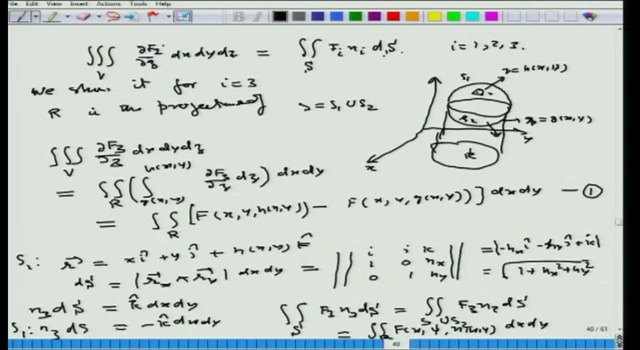 ∭_V ∂F_i/∂z dx dy dz = ∬_S F_i n_i dS. i = 1, 2, 3.
We show it for i = 3
R is the projection of S = S₁ ∪ S₂
S₁ z = h(x, y)
S₂ z = g(x, y)
R
x y
∭_V ∂F₃/∂z dx dy dz
= ∬_R ( ∫_{g(x,y)}^{h(x,y)} ∂F₃/∂z dz ) dx dy
= ∬_R [F(x, y, h(x, y)) − F(x, y, g(x, y))] dx dy — ①
S₁: r⃗ = x î + y ĵ + h(x, y) k̂
dS = |r⃗_x × r⃗_y| dx dy = || i j k ; 1 0 h_x ; 0 1 h_y || = |−h_x î − h_y ĵ + k̂|
= √(1 + h_x² + h_y²)
n₃ dS = k̂ dx dy
∬_S F₃ n₃ dS = ∬_{S₁∪S₂} F₃ n₃ dS
S₁: n₃ dS = −k̂ dx dy
= ∬_R F(x, y, h(x, y)) dx dy
40 / 61
40